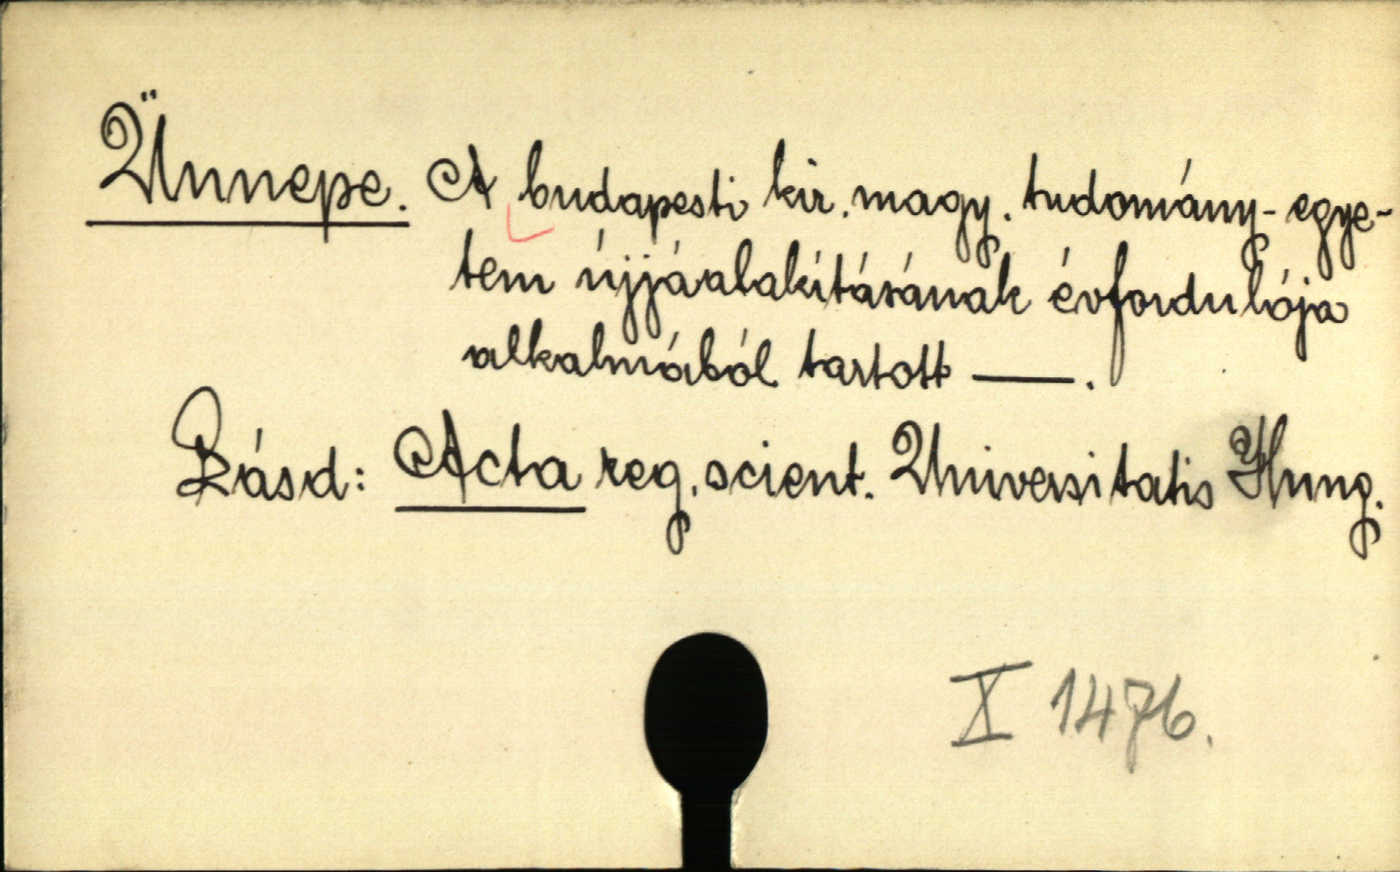 Ünnepe. A budapesti kir. magy. tudomány-egye-
tem újjáalakításának évfordulója
alkalmából tartott ——.
Lásd: Acta reg. scient. Universitatis Hung.
X 1476.